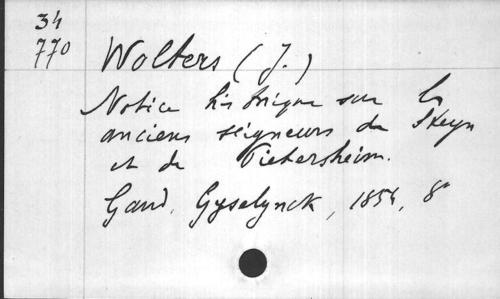 34
770
Wolters (J.)
Notice historique sur les
anciens seigneurs de Steyn
et de Pietersheim.
Gand, Gyselynck, 1854, 8°